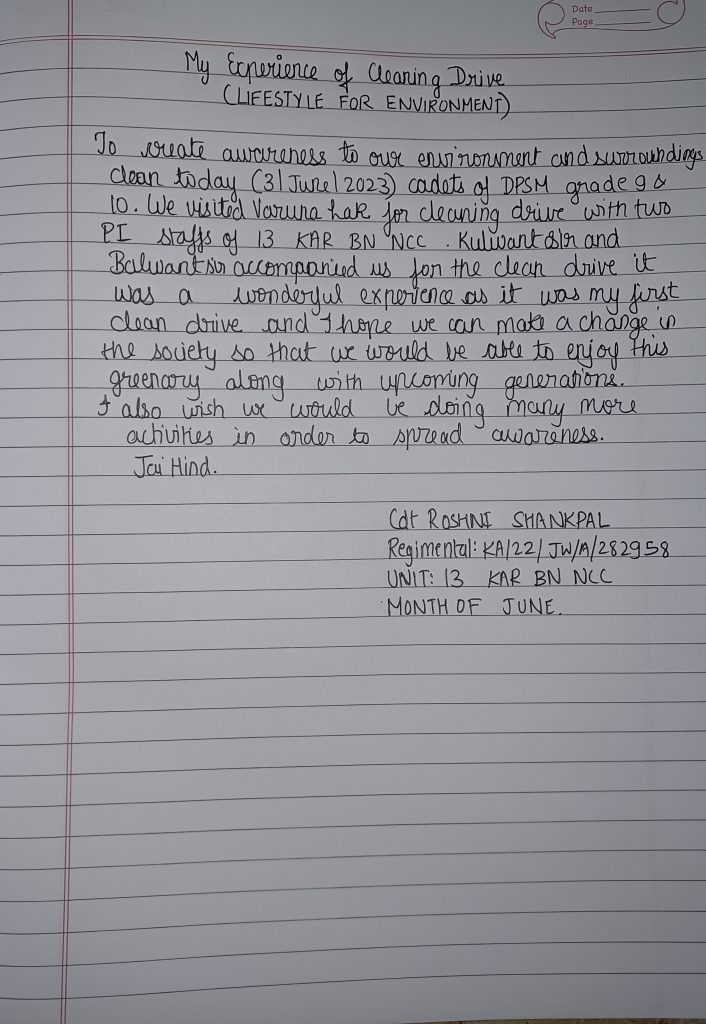 Date
Page
My Experience of Cleaning Drive
(LIFESTYLE FOR ENVIRONMENT)
To create awareness to our environment and surroundings
clean today (3|June|2023) cadets of DPSM grade 9 &
10. We visited Varuna lak for cleaning drive with two
PI staffs of 13 KAR BN NCC. Kulwant sir and
Balwant sir accompanied us for the clean drive it
was a wonderful experience as it was my first
clean drive and I hope we can make a change in
the society so that we would be able to enjoy this
greenary along with upcoming generations.
I also wish we would be doing many more
activities in order to spread awareness.
Jai Hind.
Cdt ROSHNI SHANKPAL
Regimental: KA/22/JW/A/282958
UNIT: 13 KAR BN NCC
MONTH OF JUNE.